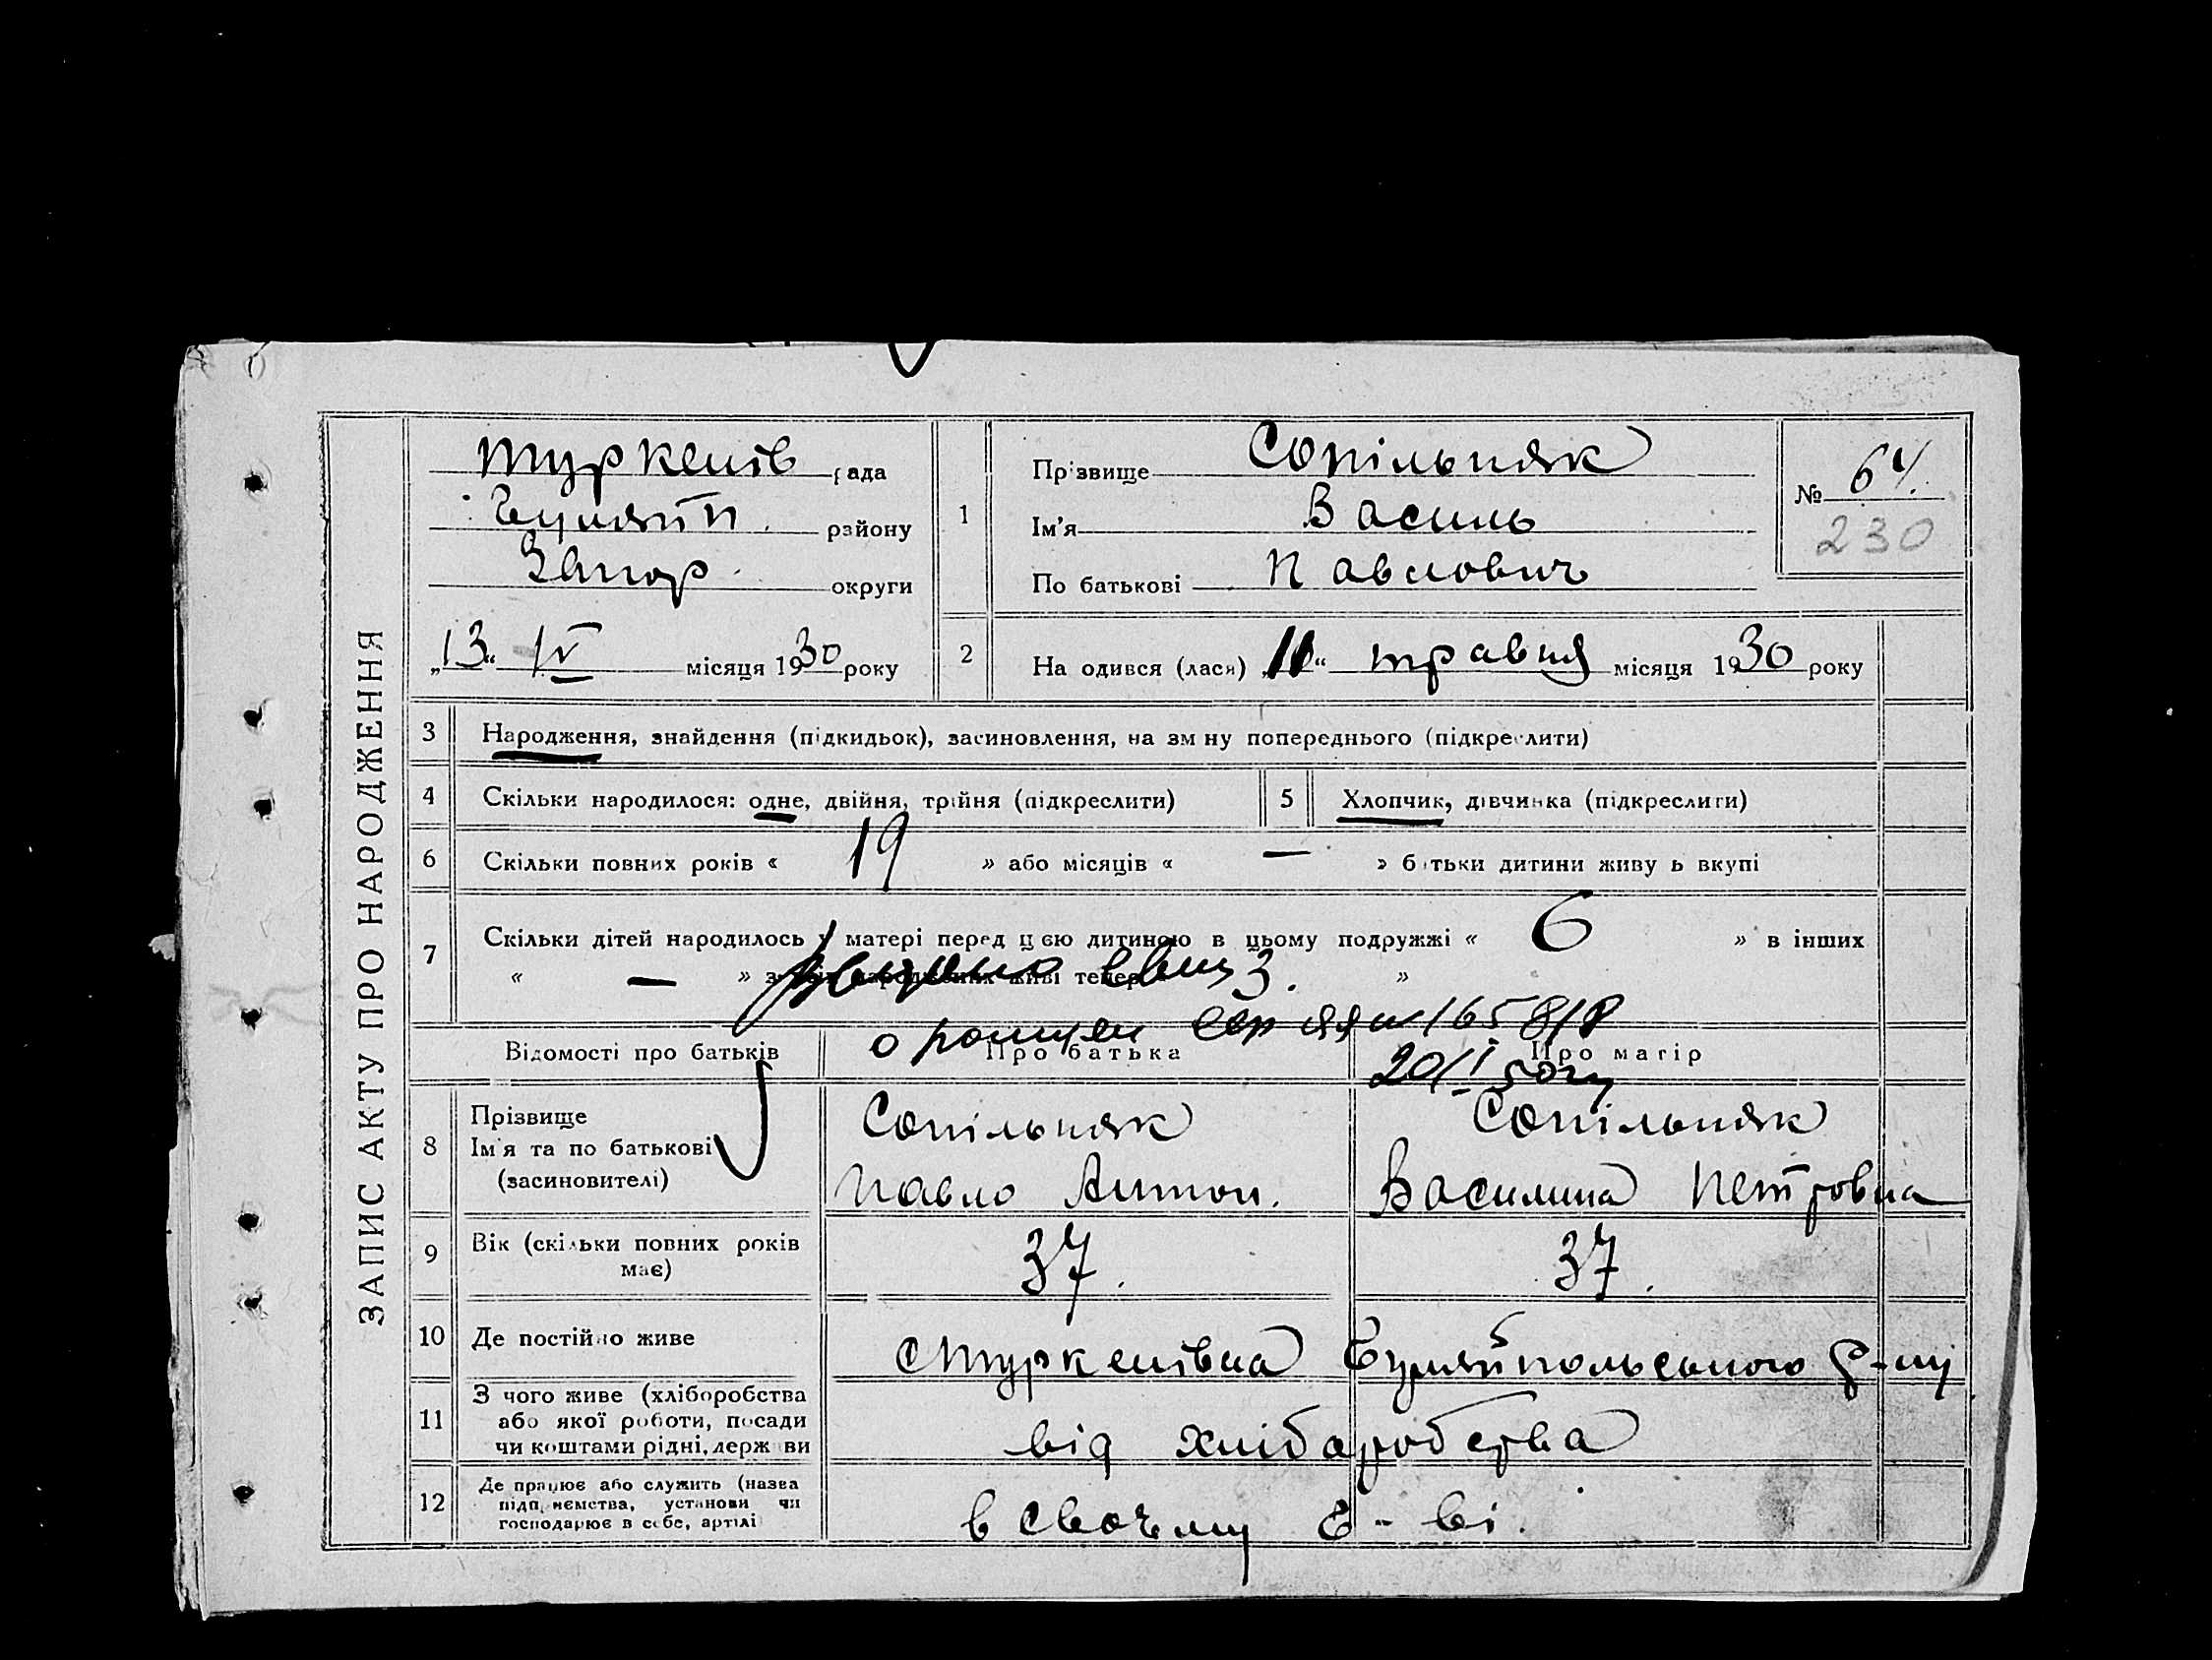 ЗАПИС АКТУ ПРО НАРОДЖЕННЯ
Туркенів рада
Гуляйп. району
Запор. округи
„13“ IV місяця 1930 року
1
Прізвище Сопільняк
Ім'я Василь
По батькові Павлович
№ 64.
230
2 На одився (лася) „11“ травня місяця 1930 року
3 Народження, знайдення (підкидьок), засиновлення, на зм ну попереднього (підкреслити)
4 Скільки народилося: одне, двійня, трійня (підкреслити)
5 Хлопчик, дівчинка (підкреслити)
6 Скільки повних років « 19 » або місяців « — » батьки дитини живу ь вкупі
7 Скільки дітей народилось у матері перед цією дитиною в цьому подружжі « 6 » в інших
« — » з усіх народжених живі тепер « 3. »
о рожден
20/I 50 г
Відомості про батьків
Про батька
Про матір
8 Прізвище
Ім'я та по батькові
(засиновителі)
Сопільняк
Павло Антон.
Сопільняк
Василина Петровна
9 Вік (скільки повних років має)
37.
37.
10 Де постійно живе
с Туркенівка Гуляйпольського р-ну
11 З чого живе (хліборобства
або якої роботи, посади
чи коштами рідні, держави
від хліборобства
12 Де працює або служить (назва
підприємства, установи чи
господарює в себе, артілі
в своєму г-ві.